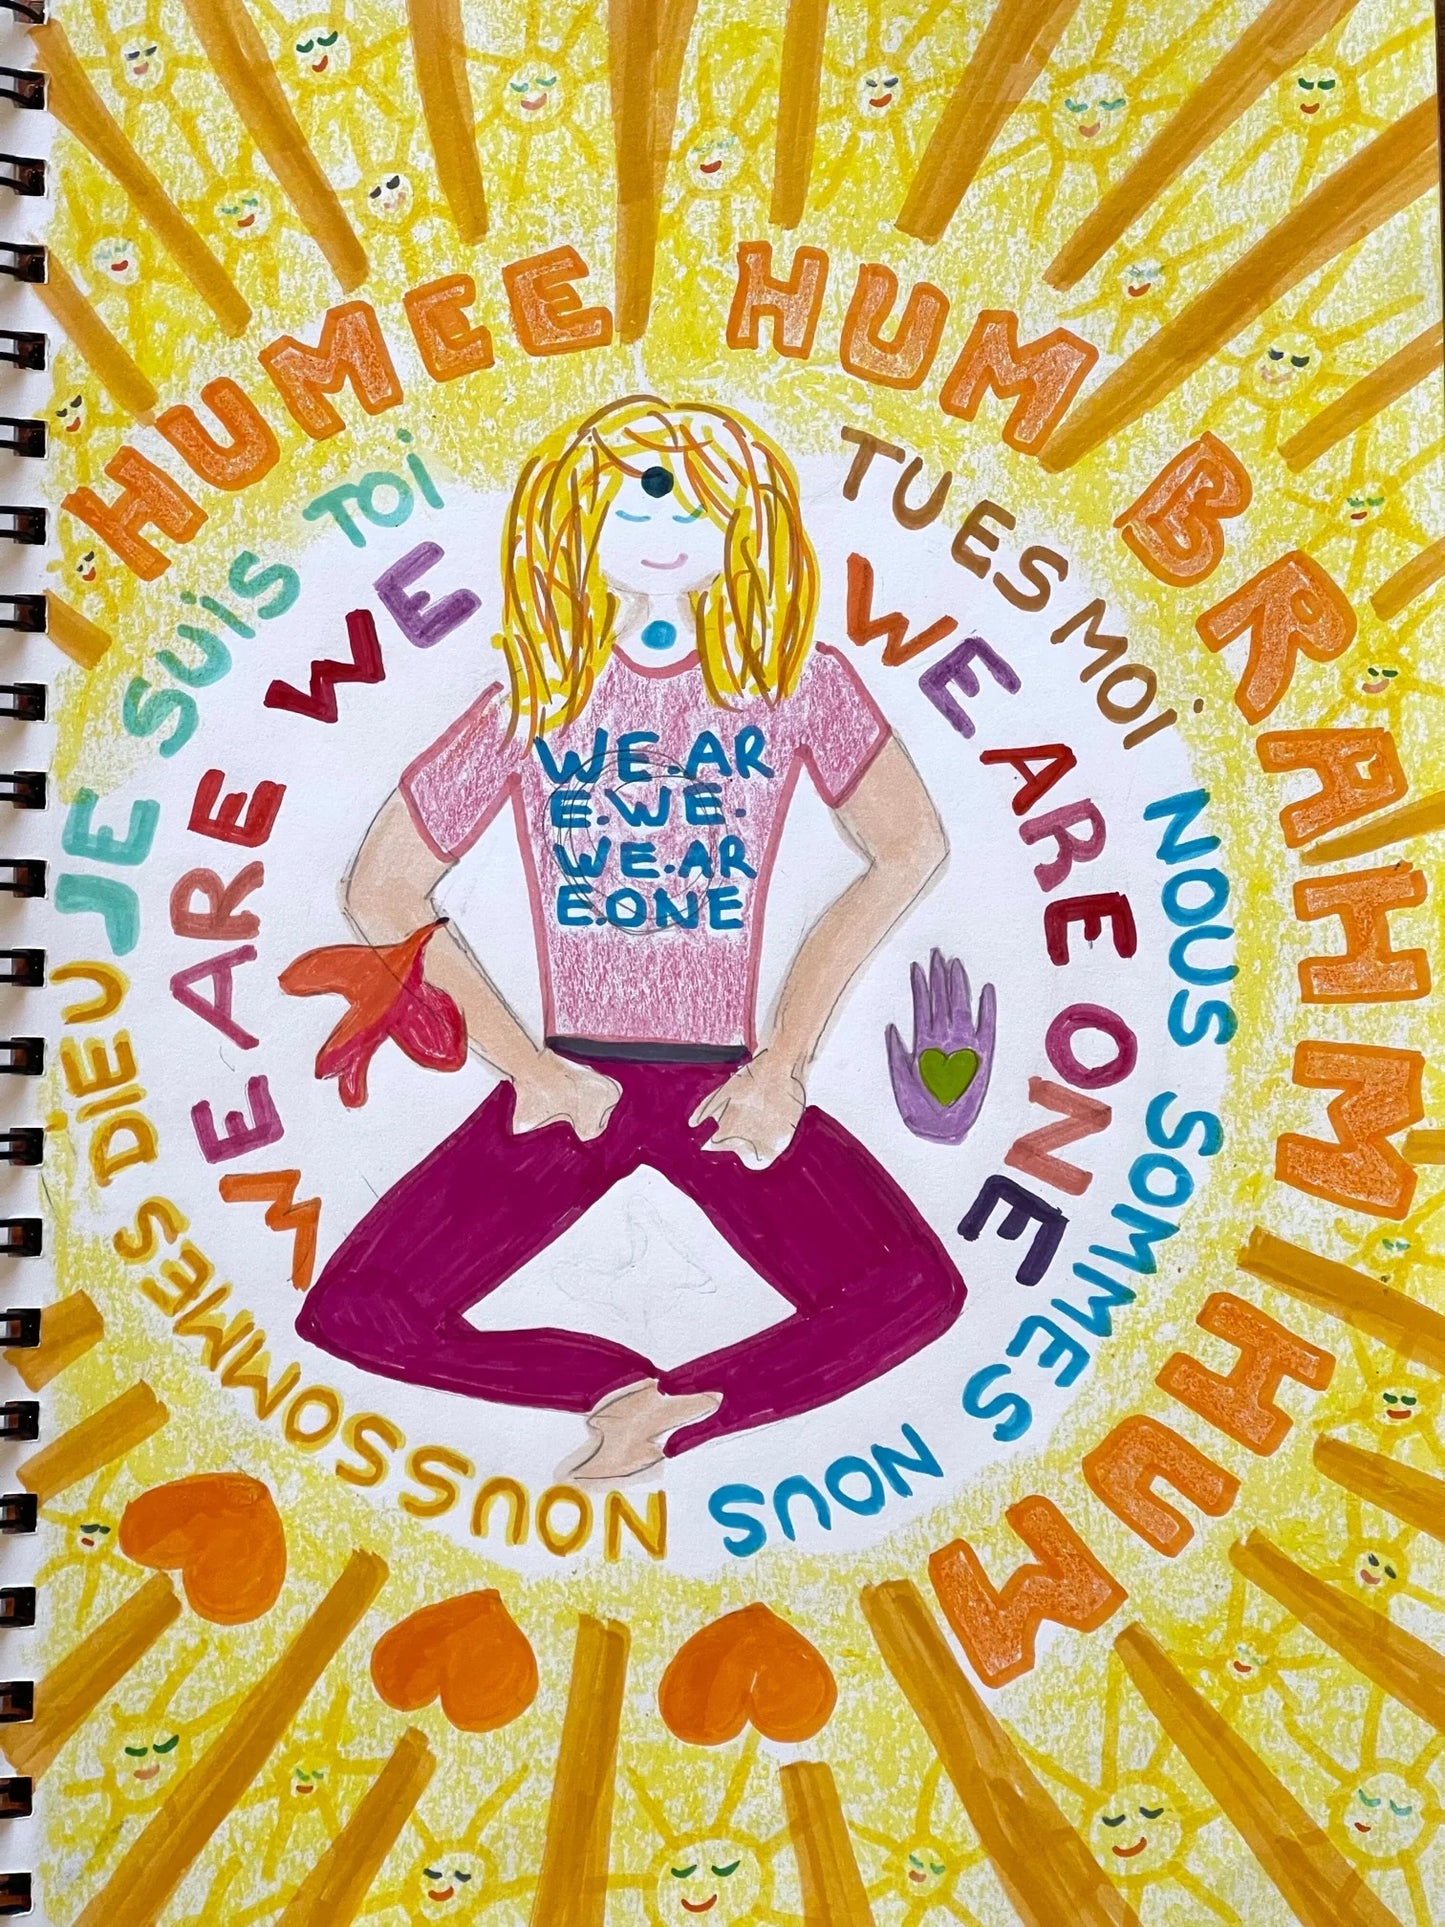 HUMEE HUM BRAHM HUM
JE SUIS TOI
TU ES MOI
NOUS SOMMES NOUS
NOUS SOMMES DIEU
WE ARE WE
WE ARE ONE
WE.AR
E.WE.
WE.AR
E.ONE